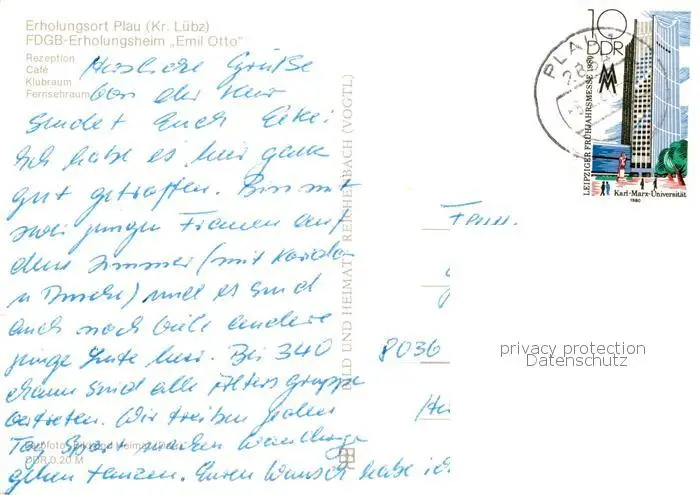 Erholungsort Plau (Kr. Lübz)
FDGB-Erholungsheim „Emil Otto"
Rezeption
Café
Klubraum
Fernsehraum
Herzliche Grüße
von der Kur
sendet Euch
Ich habe es hier ganz
gut getroffen. Bin mit
zwei jungen Frauen auf
dem Zimmer (mit
u Dusche) und es sind
auch noch viele andere
junge Leute hier. Bei 340
sind alle Altersgruppe
vertreten. Wir treiben jeden
Tag Sport machen
gehen tanzen. Euren Wunsch habe ich
DDR 0,20 M
BILD UND HEIMAT REICHENBACH (VOGTL)
10
DDR
LEIPZIGER FRÜHJAHRSMESSE 1980
MM
Karl-Marx-Universität
1980
PLAU
Fam.
8036
privacy protection
Datenschutz